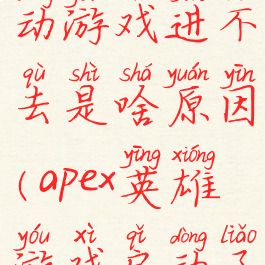 动游戏进不
qù shì shá yuán yīn
去是啥原因
yīng xióng
(apex英雄
yóu xì qǐ dòng liǎo
游戏启动了